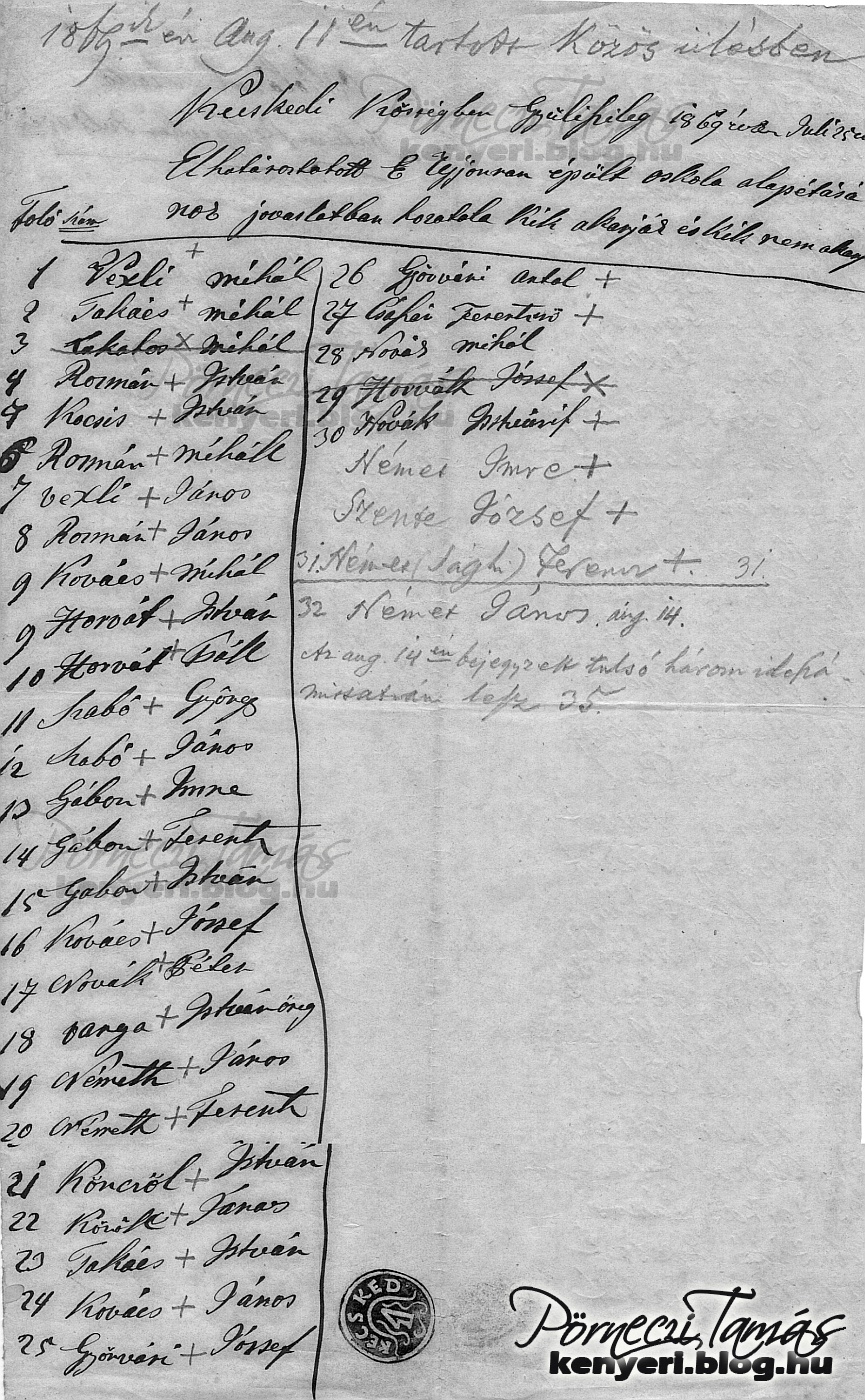 1869 ik évi Aug. 11 én tartott Közös ülésben
Kecskedi Községben Gyülésileg 1869 évben Juli 25
Elhatároztatott E Ujjonnan épült oskola alapétásá
noz jovaslatban hozatola Kik akarják és kik nem akarj
Foló szám
1 Vexli + mihál
2 Takács + mihál
3 Lakatos x mihál
4 Rozmán + István
7 Kocsis + István
6 Rozmán + miháll
7 Vexli + János
8 Rozmán + János
9 Kovács + mihál
9 Horvát + István
10 Horvát + Páll
11 Szabó + György
12 Szabó + János
13 Gábor + Imre
14 Gábor + Ferentz
15 Gabor + István
16 Kovács + József
17 Novák + Péter
18 Varga + István öreg
19 Németh + János
20 Németh + Ferentz
21 Könczöl + István
22 Körökl + János
23 Takács + István
24 Kovács + János
25 Győrvári + József
26 Győrvári Antal +
27 Csapai Ferentz +
28 Novák mihál
29 Horváth József x
30 Novák István if +
Német Imre +
Szente József +
31. Német (Sághi) Ferencz +. 31.
32 Német János. aug. 14.
Az aug. 14 én bejegyzett tulsó három idehá-
lesz 35.
KECSKED
Pörneczi Tamás
kenyeri.blog.hu